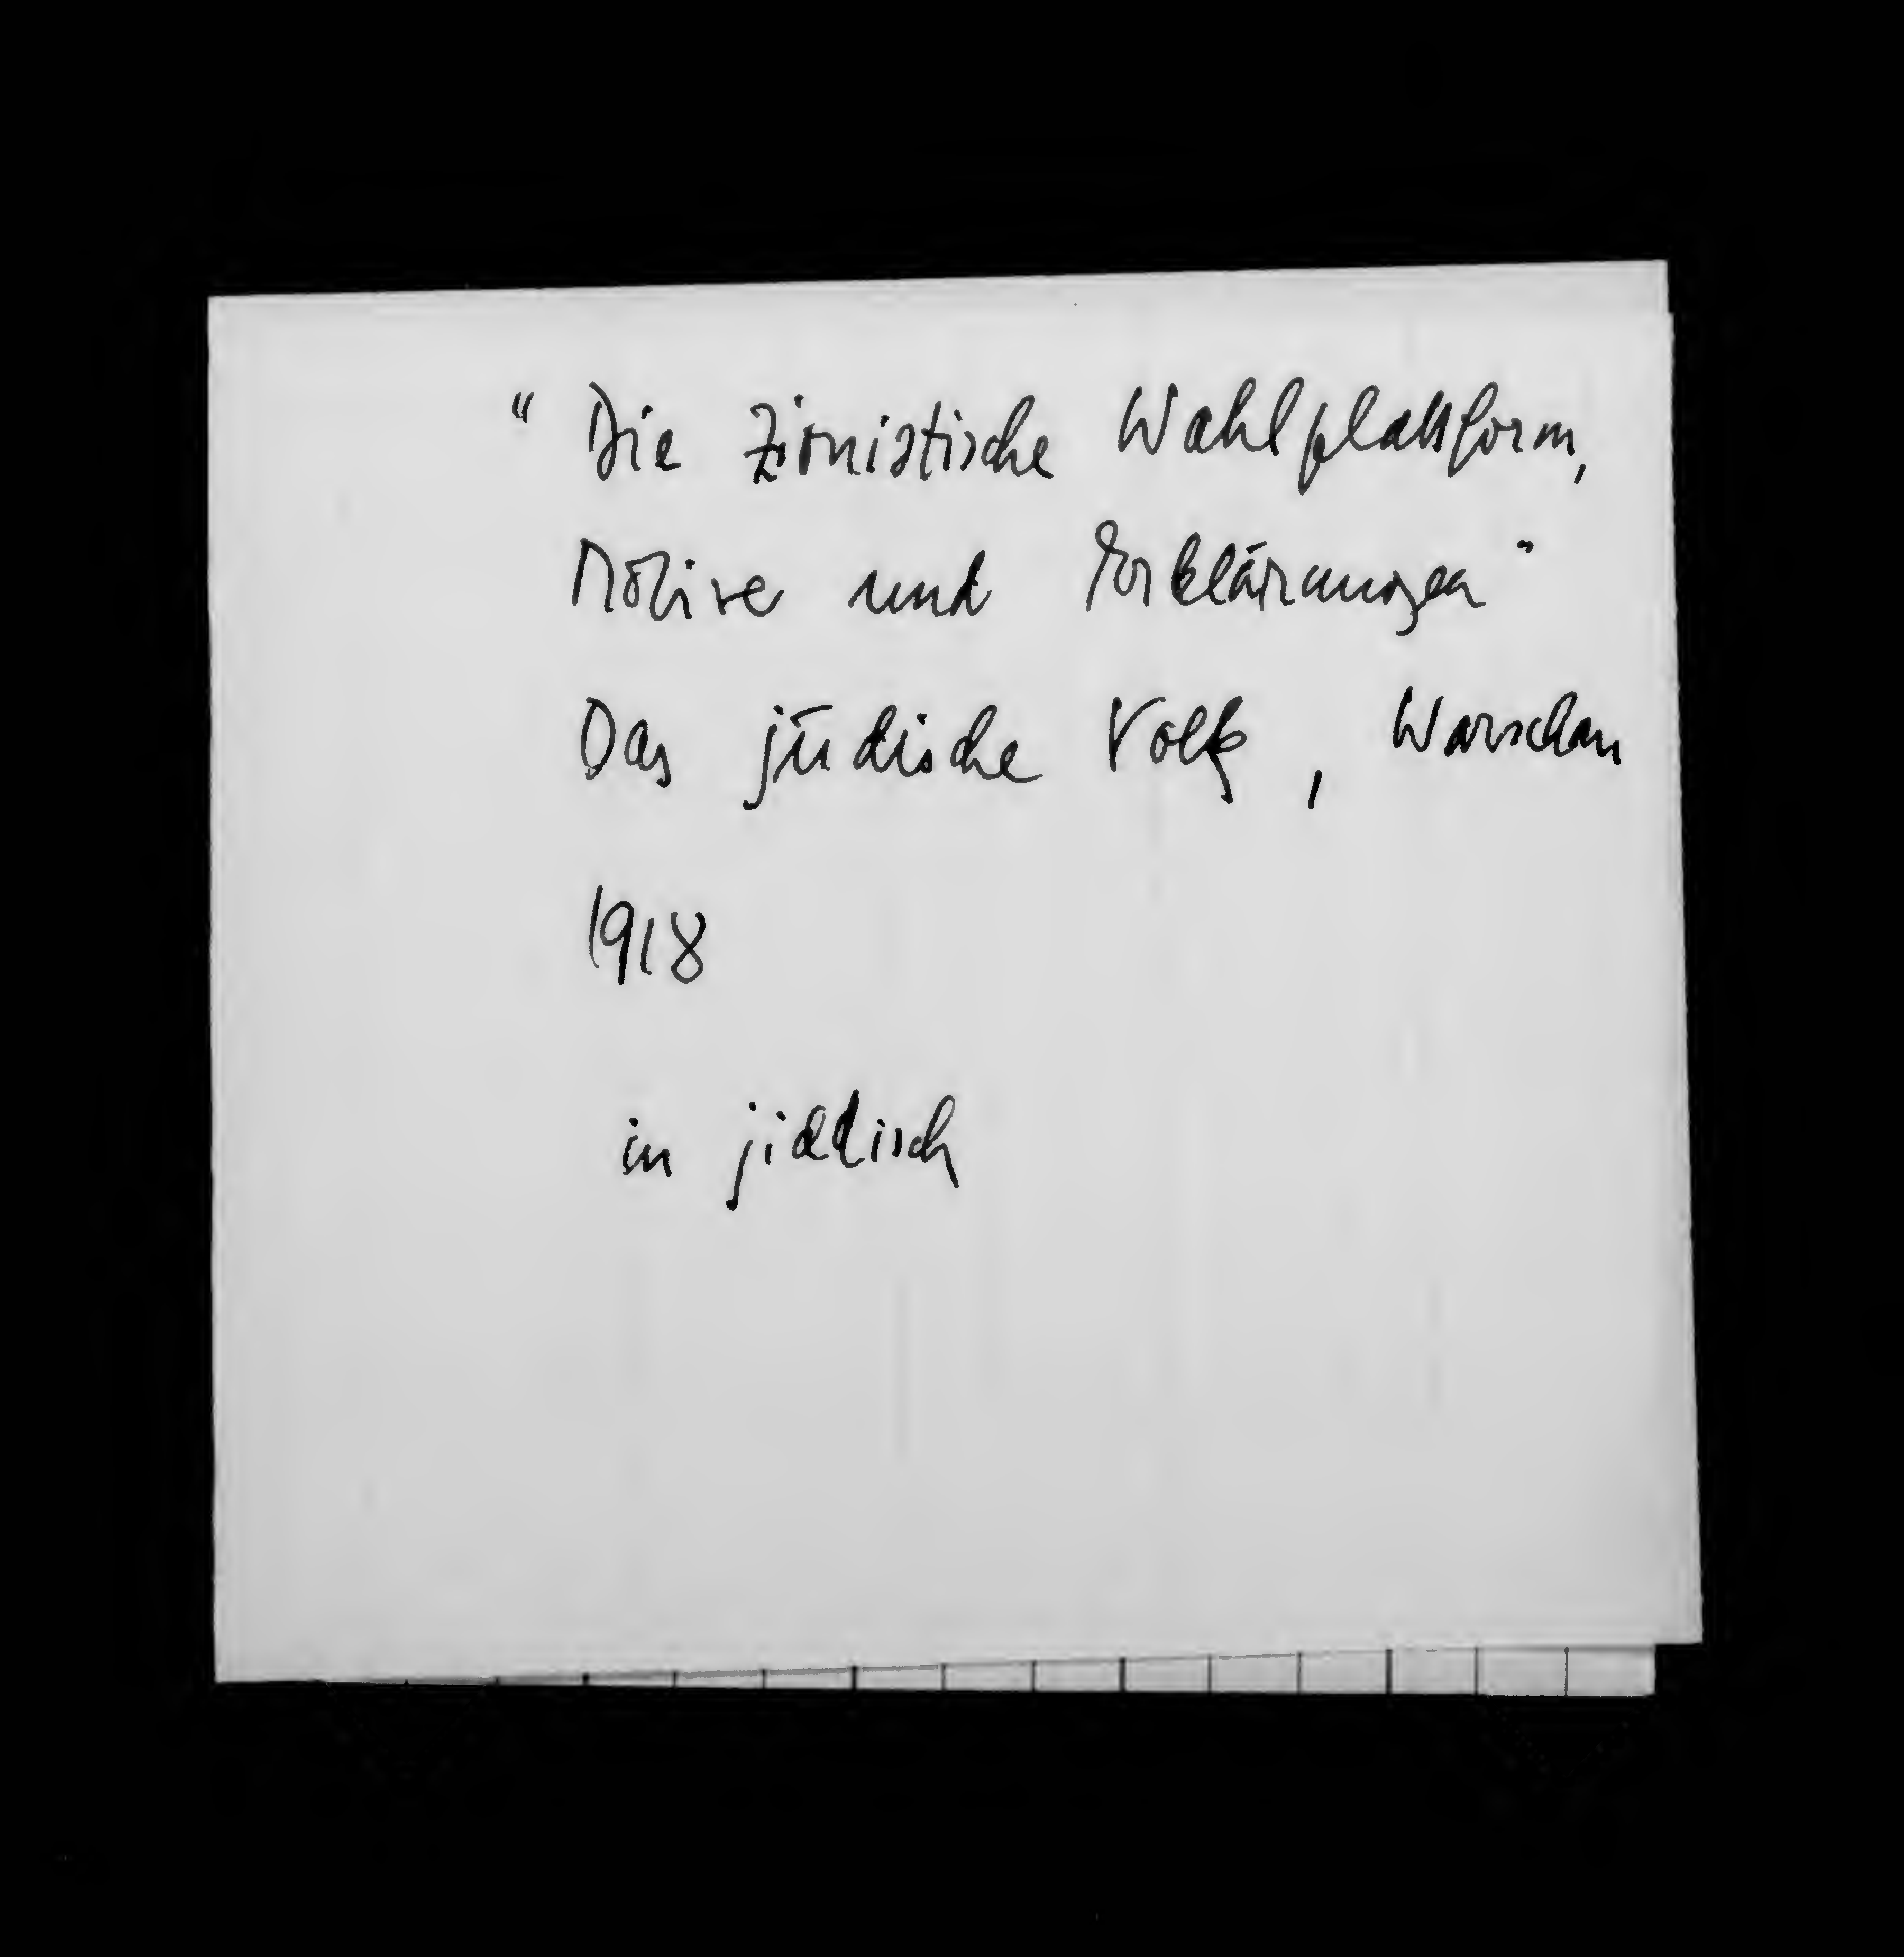 " Die Zionistische Wahlplattform,
Motive und Erklärungen "
Das jüdische Volk, Warschau
1918
in jiddisch